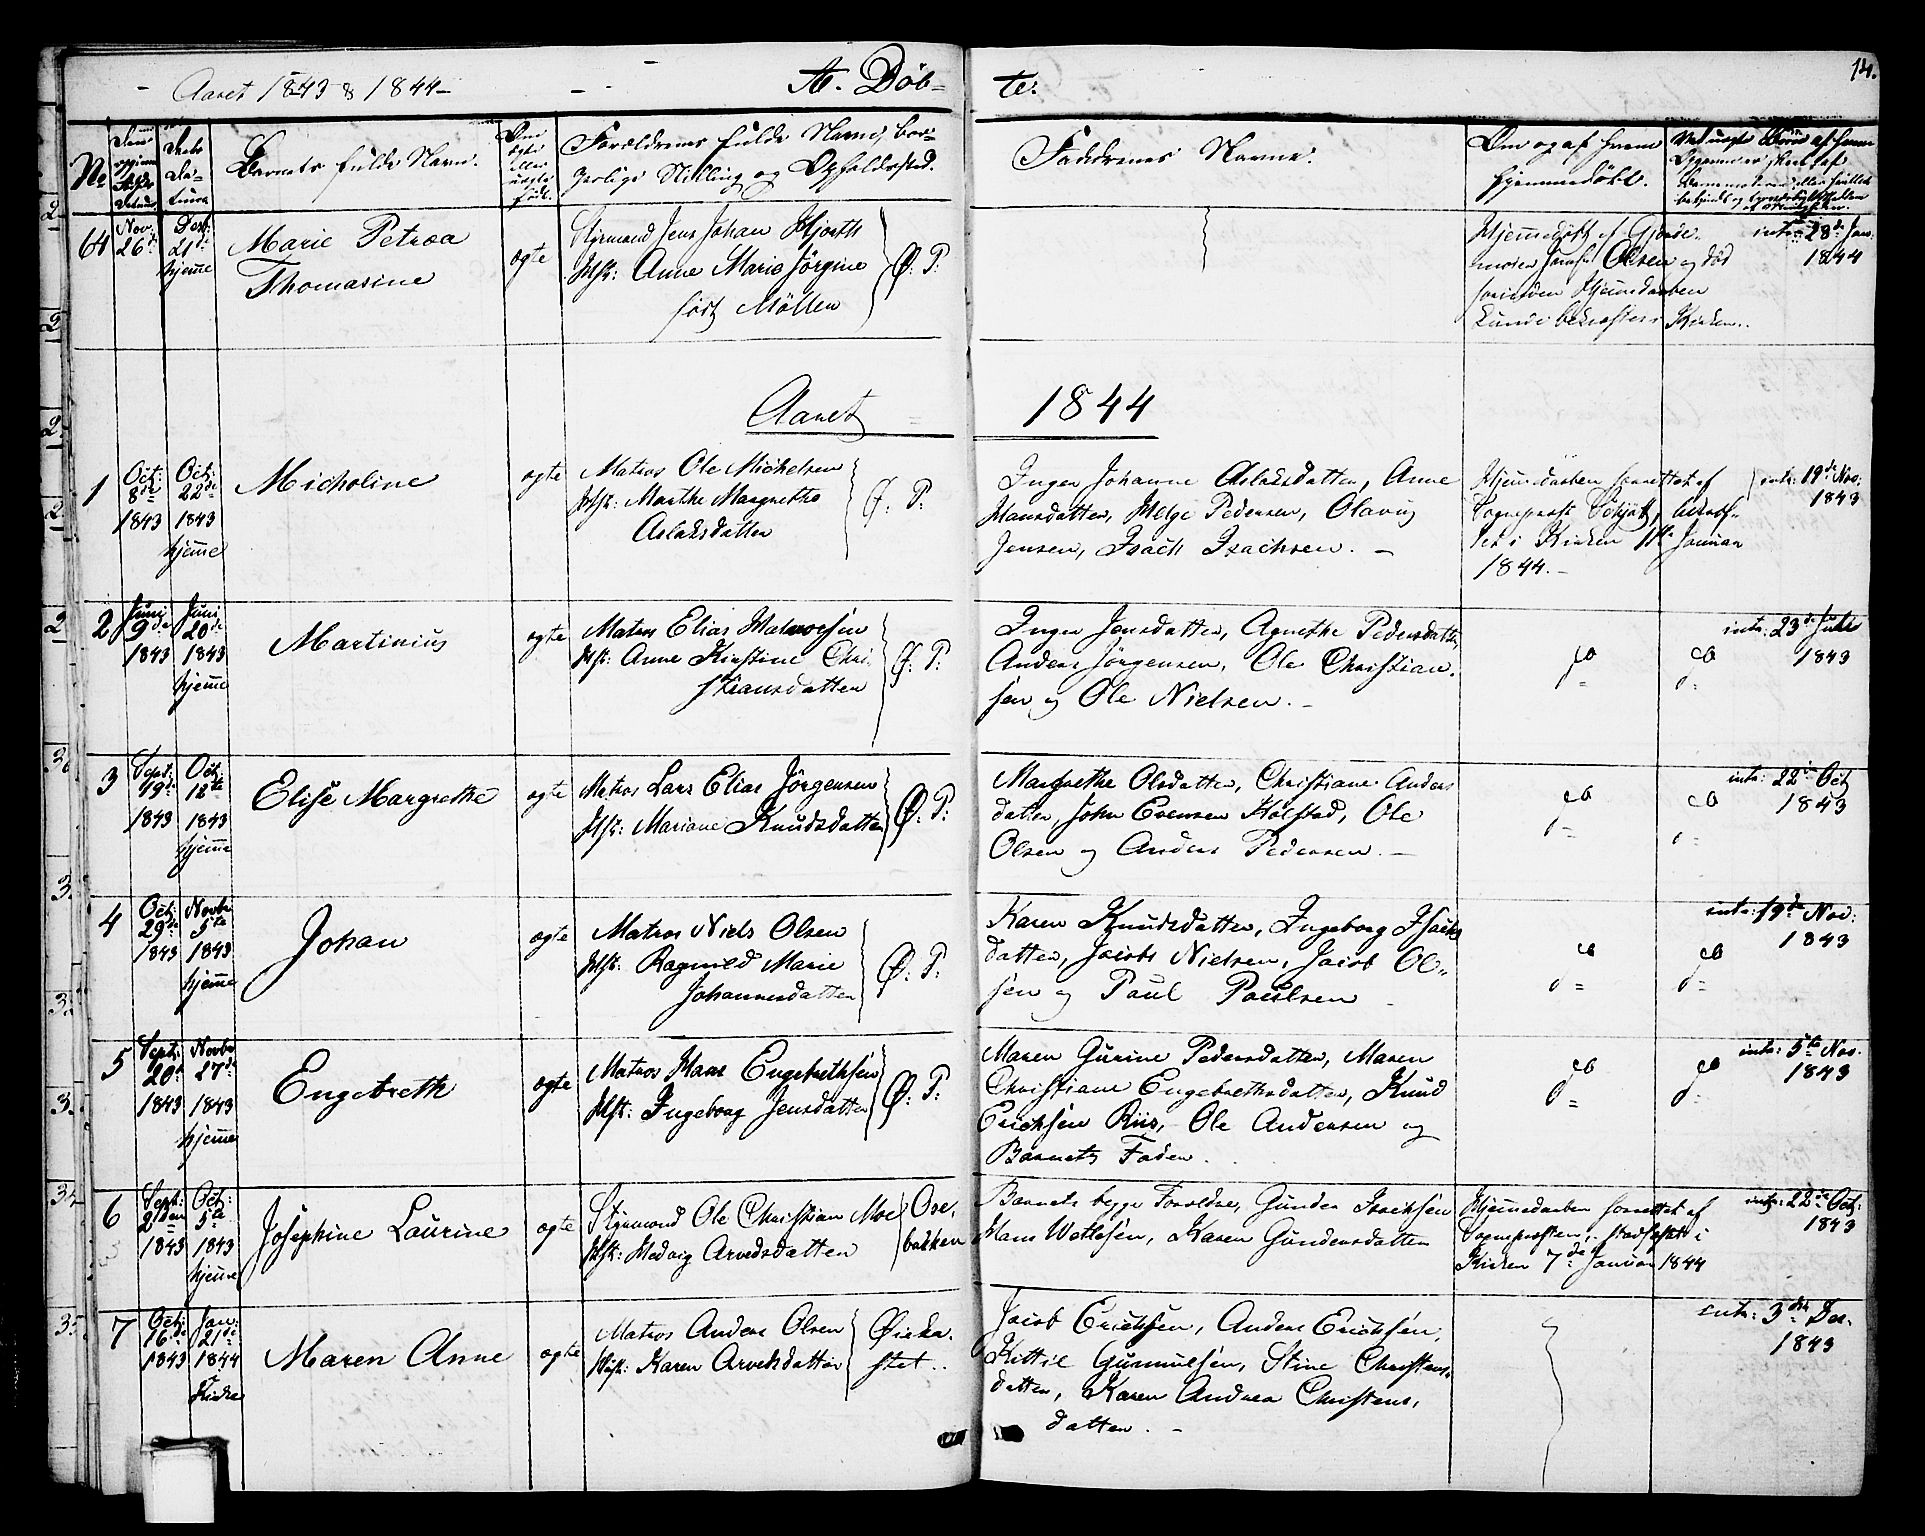 Aaret 1843 & 1844
A. Döb-
te.
14.
No
Barnets fulde Navn.
Forældrenes fulde Navne, bor-
gerlige Stilling og Opholdssted.
Faddrenes Navne.
Om og af hvem
hjemmedöbt.
64
Nov.
26de
Desb.
21de
hjemme
Marie Petrea
Thomasine
ægte
Styrmand Jens Johan Hjorth
Hst: Anne Marie Jörgine
föd Möller
Ø: P:
Hjemmedöbt af Gjorde-
moren Olsen og död
forinden Hjemmedaaben
kunde bekræftes i Kirken.
intr: 28de Jan:
1844
Aaret
1844
1
Oct:
8de
1843
Oct:
22de
1843
hjemme
Micholine
ægte
Matros Ole Michelsen
Hst: Marthe Margrethe
Aslaksdatter
Ø: P:
Inger Johanne Aslaksdatter, Anne
Hansdatter, Helge Pedersen, Olavus
Jensen, Isach Isachsen.
Hjemmedaaben forrettet af
Sogneprest bekræf-
tet i Kirken 1ste Januar
1844.
intr: 19de Nov:
1843
2
Juni
9de
1843
Juni
20de
1843
hjemme
Martinius
ægte
Matros Elias Halvorsen
Hst: Anne Kirstine Chri-
stiansdatter
Ø: P:
Inger Jensdatter, Agnethe Pedersdatter,
Anders Jörgensen, Ole Christian-
sen og Ole Nielsen.
intr: 23de Juli
1843
3
Sept:
19de
1843
Oct:
12te
1843
hjemme
Elise Margrethe
ægte
Matros Lars Elias Jörgensen
Hst: Mariane Knudsdatter
Ø: P:
Margrethe Olsdatter, Christiane Anders
datter, John Evensen Holstad, Ole
Olsen og Anders Pedersen.
intr: 22de Oct:
1843
4
Oct:
29de
1843
Novbr
5te
1843
hjemme
Johan
ægte
Matros Niels Olsen
Hst: Ragnild Marie
Johannesdatter
Ø: P:
Karen Knudsdatter, Ingeborg Isaks
datter, Jacob Nielsen, Jacob Ol-
sen og Paul Paulsen
intr: 19de Nov:
1843
5
Sept:
20de
1843
Novbr
27de
1843
hjemme
Engebreth
ægte
Matros Hans Engebrethsen
Hst: Ingeborg Jensdatter
Ø: P:
Maren Gurine Pedersdatter, Maren
Christiane Engebrethsdatter, Knud
Erichsen Riis, Ole Andersen og
Barnets Fader.
intr: 5te Nov.
1843
6
Sept:
21den
1843
Oct:
5te
1843
hjemme
Josephine Laurine
ægte
Styrmand Ole Christian Moe
Hst: Hedvig Arvedsdatter
Ove-
bakken
Barnets begge Forældre, Gunder Isachsen
Hans Wetlesen, Karen Gundersdatter
Hjemmedaaben forrettet af
Sognepresten, stadfæstet i
Kirken 7de Januar 1844
intr: 22de Oct:
1843
7
Oct:
16de
1843
Jan:
21de
1844
Kirke
Maren Anne
ægte
Matros Anders Olsen
Hst: Karen Arvedsdatter
Øieka-
stet
Jacob Erichsen, Anders Erichsen,
Kittil Gunnulsen, Stine Christens-
datter, Karen Andrea Christens-
datter.
intr: 3die Des.
1843